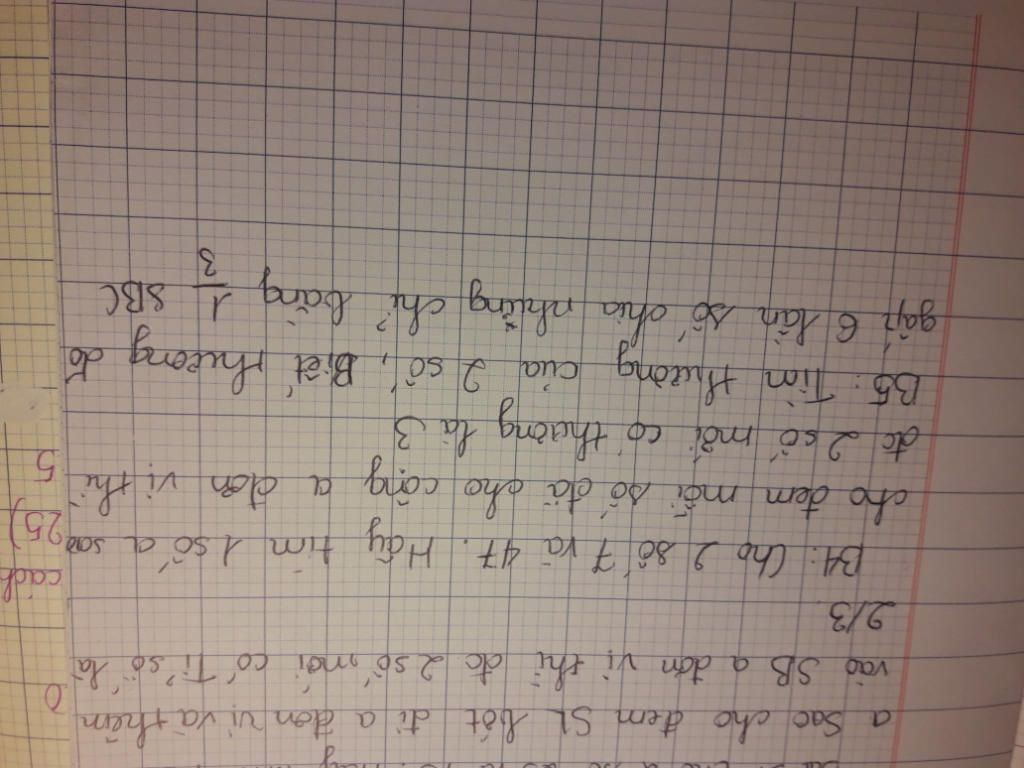 a sao cho đem SL bớt đi a đơn vị và thêm
vào SB a đơn vị thì đc 2 số mới có Tỉ số là
2/3
B4: Cho 2 số 7 và 47. Hãy tìm 1 số a sao
cho đem mỗi số đã cho cộng a đơn vị thì
đc 2 số mới có thương là 3
B5: Tìm thương của 2 số, Biết thương đó
gấp 6 lần số chia nhưng chỉ bằng 1/3 SBC
0
cách
25)
5